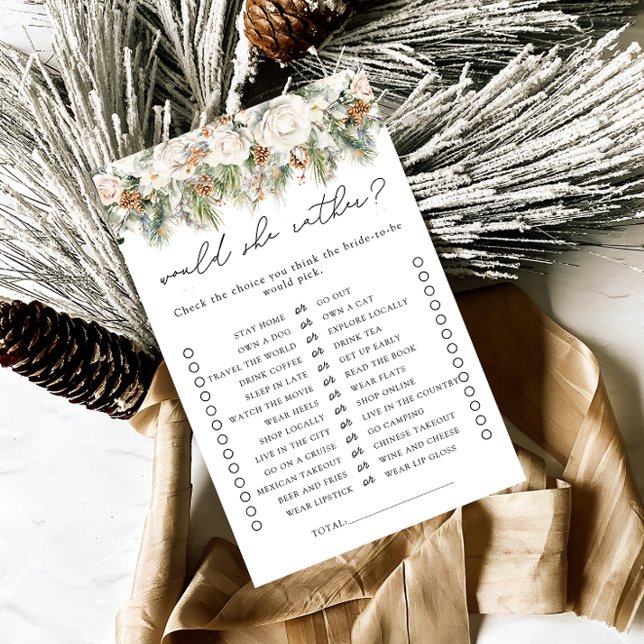 would she rather?
Check the choice you think the bride-to-be
would pick.
STAY HOME or GO OUT
OWN A DOG or OWN A CAT
TRAVEL THE WORLD or EXPLORE LOCALLY
DRINK COFFEE or DRINK TEA
SLEEP IN LATE or GET UP EARLY
WATCH THE MOVIE or READ THE BOOK
WEAR HEELS or WEAR FLATS
SHOP LOCALLY or SHOP ONLINE
LIVE IN THE CITY or LIVE IN THE COUNTRY
GO ON A CRUISE or GO CAMPING
MEXICAN TAKEOUT or CHINESE TAKEOUT
BEER AND FRIES or WINE AND CHEESE
WEAR LIPSTICK or WEAR LIP GLOSS
TOTAL: